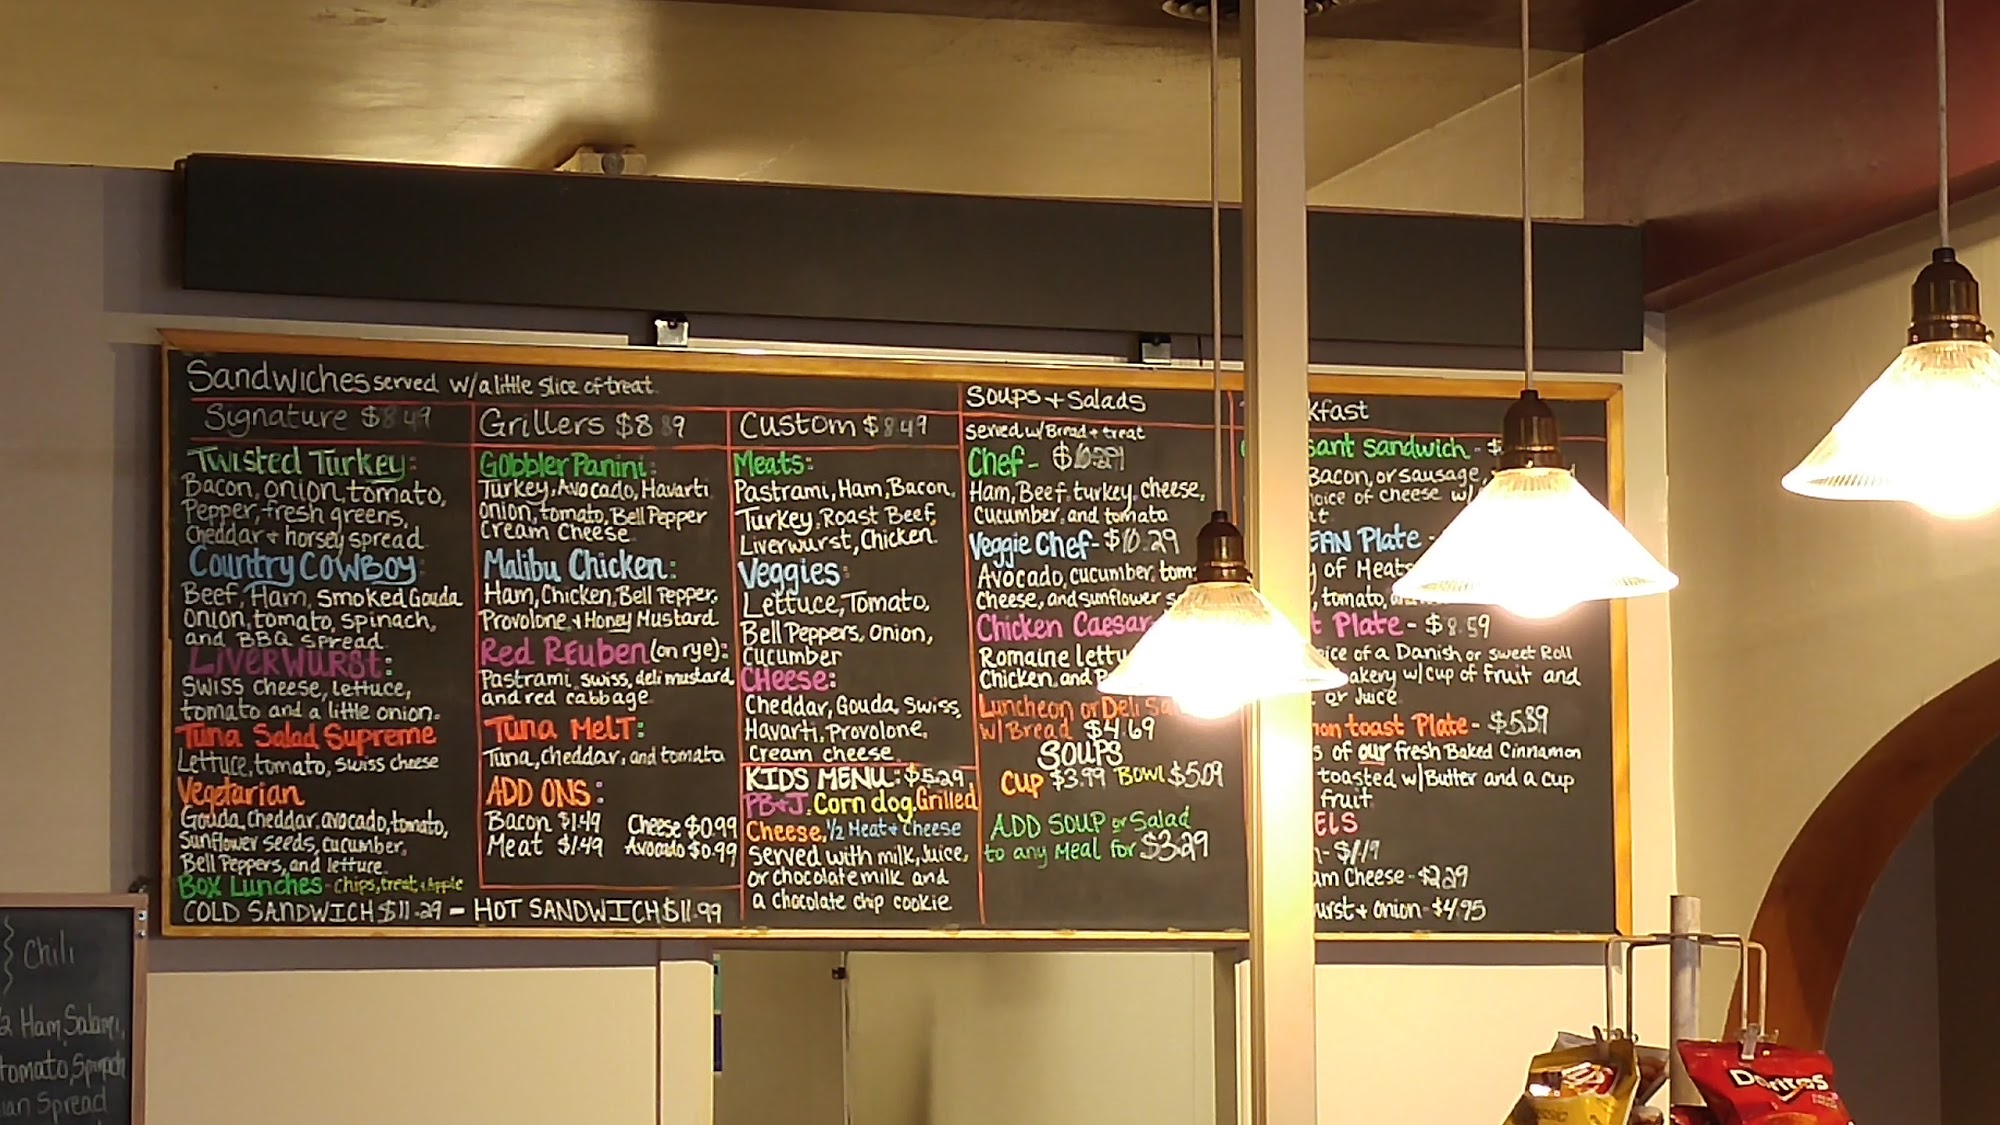 Sandwiches served w/a little slice of treat
Signature $8.49
Twisted Turkey:
Bacon, onion, tomato,
Pepper, fresh greens,
cheddar + horsey spread
Country COWBOY:
Beef, Ham, smoked Gouda
onion, tomato, spinach,
and BBQ spread
LIVERWURST:
swiss cheese, lettuce,
tomato and a little onion.
Tuna Salad Supreme
Lettuce, tomato, swiss cheese
Vegetarian
Gouda, cheddar, avocado, tomato,
Sunflower seeds, cucumber,
Bell Peppers, and lettuce
BOX LUNCHES - chips, treat + Apple
COLD SANDWICH $11.29 - HOT SANDWICH $11.99
Grillers $8.89
Gobbler Panini:
Turkey, Avocado, Havarti
onion, tomato, Bell Pepper
Cream Cheese
Malibu Chicken:
Ham, Chicken, Bell Pepper,
Provolone + Honey Mustard
Red REuben (on rye):
Pastrami, swiss, deli mustard,
and red cabbage
Tuna MELT:
Tuna, cheddar, and tomato
ADD ONS:
Bacon $1.49 Cheese $0.99
Meat $1.49 Avocado $0.99
Custom $8.49
Meats:
Pastrami, Ham, Bacon,
Turkey, Roast Beef,
Liverwurst, Chicken
Veggies:
Lettuce, Tomato,
Bell Peppers, Onion,
Cucumber
CHeese:
Cheddar, Gouda, Swiss,
Havarti, Provolone,
Cream cheese
KIDS MENU: $5.29
PB+J, Corn dog, Grilled
Cheese, 1/2 Meat + Cheese
Served with milk, Juice,
or chocolate milk and
a chocolate chip cookie
SOUPS + Salads
served w/Bread + treat
Chef - $10.29
Ham, Beef, turkey, cheese,
Cucumber, and tomato
Veggie Chef - $10.29
Avocado, cucumber, tom
Cheese, and sunflower s
Chicken Caesar
Romaine lettu
Chicken, and P
Luncheon or Deli Sa
w/Bread $4.69
SOUPS
CUP $3.99 BOWL $5.09
ADD SOUP or Salad
to any Meal for $3.29
kfast
sant Sandwich - $
Bacon, or sausage,
oice of cheese w/
t
EAN Plate -
y of Meats
, tomato,
t Plate - $8.59
ice of a Danish or sweet Roll
akery w/cup of fruit and
or Juice
on toast Plate - $5.89
s of our fresh Baked Cinnamon
toasted w/Butter and a cup
fruit
ELS
- $1.19
am Cheese - $2.29
urst + onion - $4.95
Chili
1/2 Ham, Salami,
tomato, Spinach
ian Spread
Doritos